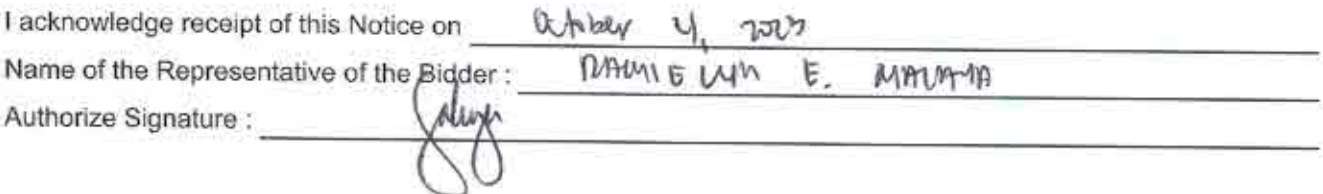 I acknowledge receipt of this Notice on October 4, 2023
Name of the Representative of the Bidder : E.
Authorize Signature :